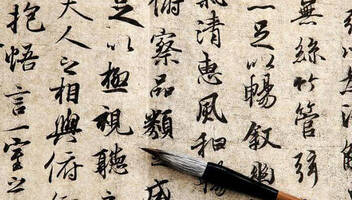 無絲竹管弦
足以暢叙幽
氣清惠風和暢
俯察品類盛
足以極視聽之
夫人之相與俯
抱悟言一室之